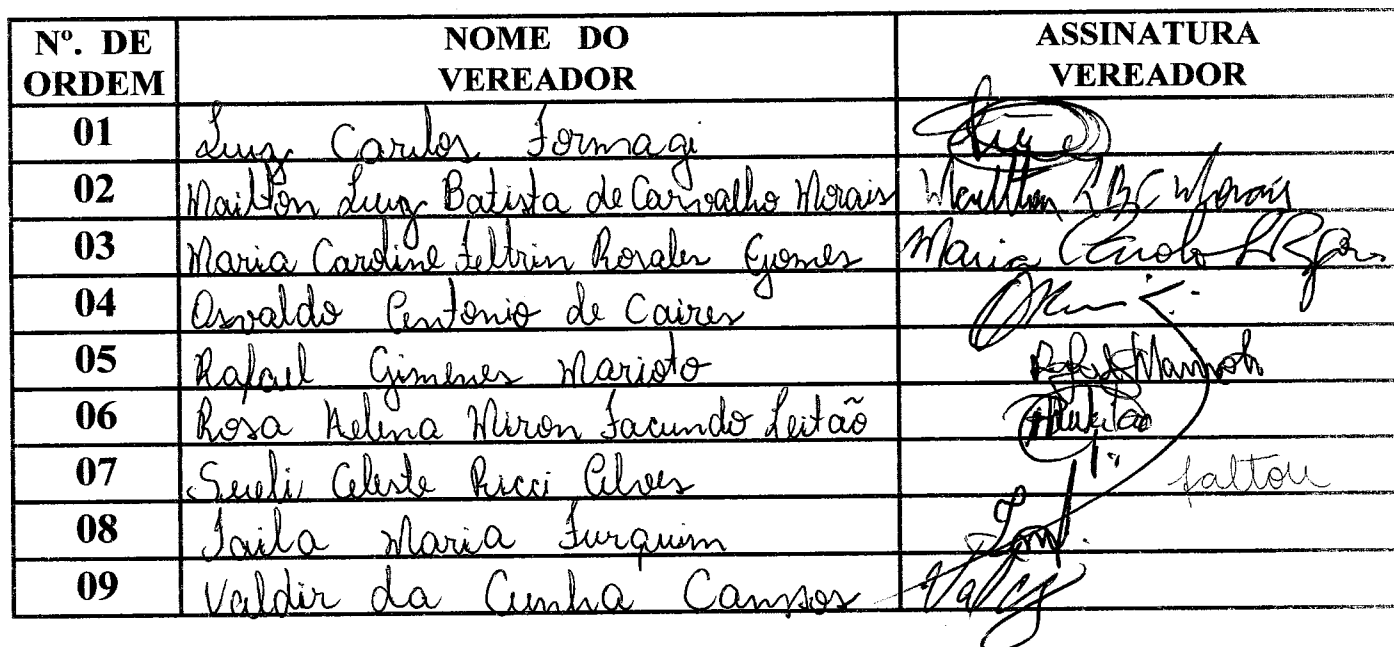 Nº. DE ORDEM NOME DO VEREADOR ASSINATURA VEREADOR
01 Luiz Carlos Formagi Luiz
02 Mailton Luiz Batista de Carvalho Morais Mailton L B C Morais
03 Maria Caroline Feltrin Rosales Gomes Maria
04 Osvaldo Antonio de Caires
05 Rafael Gimenes Marioto
06 Rosa Helena Miron Facundo Leitão
07 Sueli Celeste Ricci Alves faltou
08 Taila Maria Furquim
09 Valdir da Cunha Campos